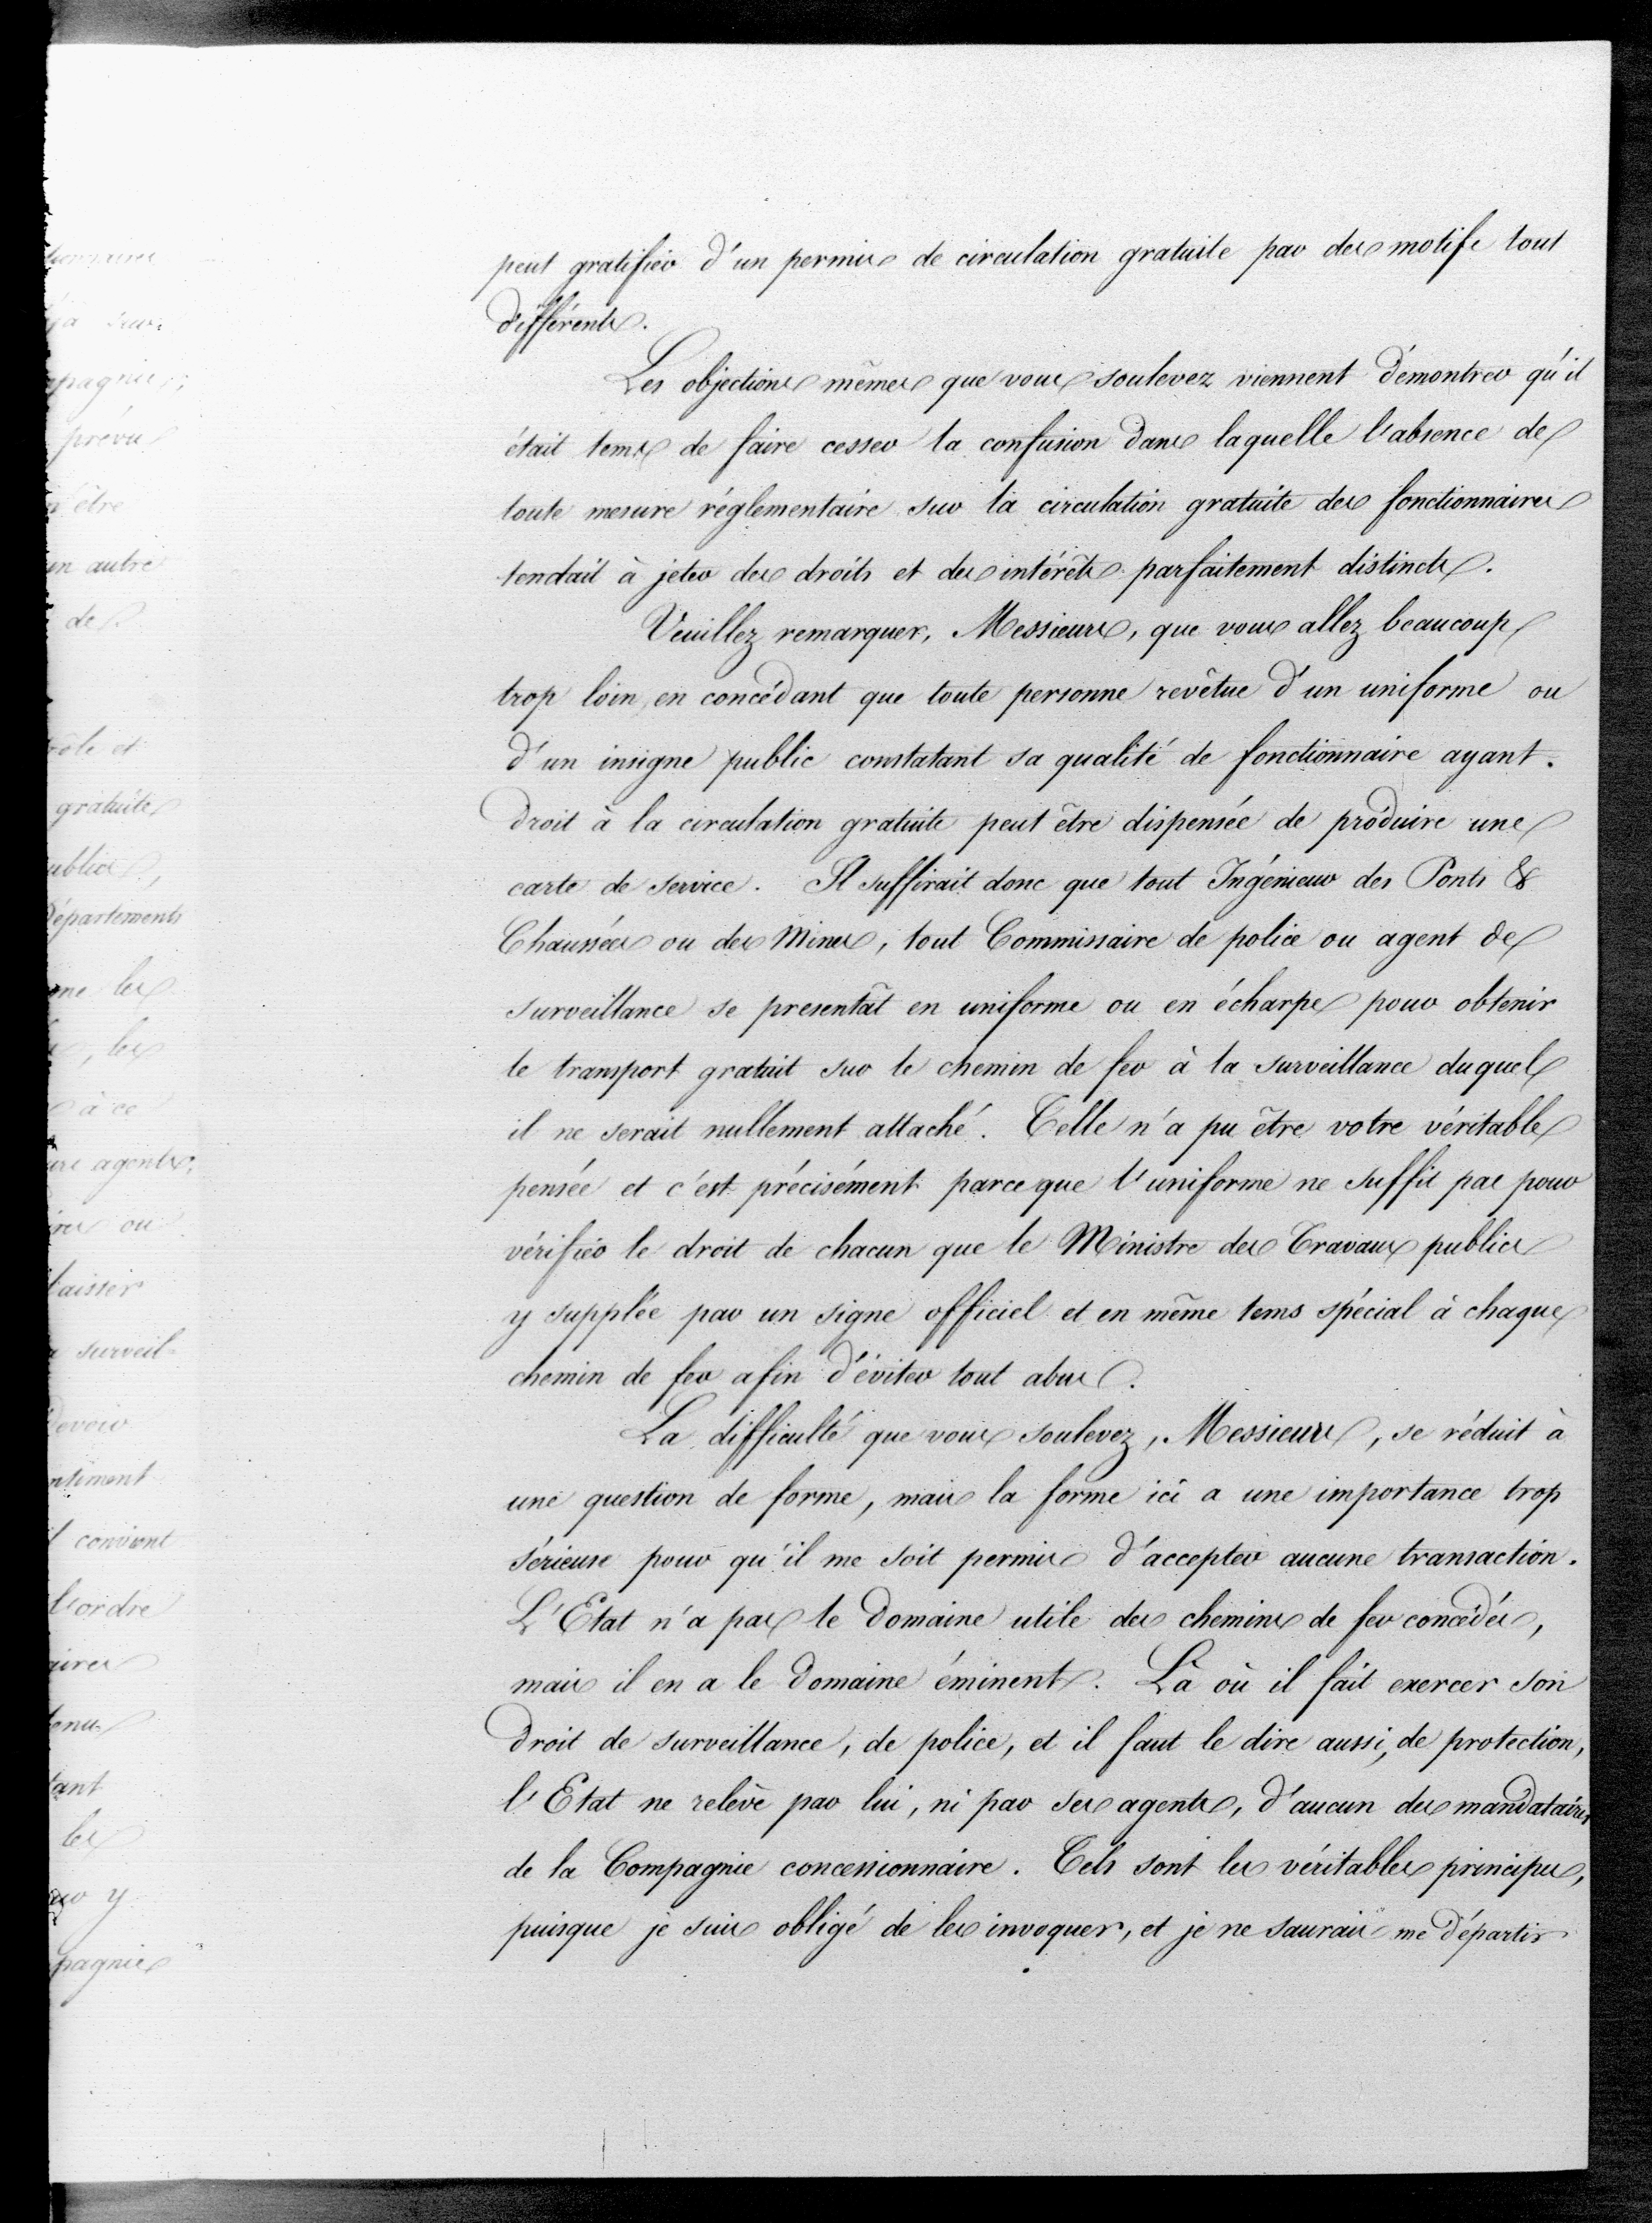 peut gratifier d'un permis de circulation gratuite par des motifs tout
différents.
Les objections mêmes que vous soulevez viennent démontrer qu'il
était tems de faire cesser la confusion dans laquelle l'absence de
toute mesure réglementaire sur la circulation gratuite des fonctionnaires
tendait à jeter des droits et des intérêts parfaitement distincts.
Veuillez remarquer, Messieurs, que vous allez beaucoup
trop loin, en concédant que toute personne revêtue d'un uniforme ou
d'un insigne public constatant sa qualité de fonctionnaire ayant
droit à la circulation gratuite peut être dispensée de produire une
carte de service. Il suffirait donc que tout Ingénieur des Ponts &
Chaussées ou des Mines, tout Commissaire de police ou agent de
surveillance se presentât en uniforme ou en écharpe pour obtenir
le transport gratuit sur le chemin de fer à la surveillance duquel
il ne serait nullement attaché. Telle n'a pu être votre véritable
pensée et c'est précisément parceque l'uniforme ne suffit pas pour
vérifier le droit de chacun que le Ministre des Travaux publics
y supplée par un signe officiel et en même tems spécial à chaque
chemin de fer afin d'éviter tout abus.
La difficulté que vous soulevez, Messieurs, se réduit à
une question de forme, mais la forme ici a une importance trop
sérieuse pour qu'il me soit permis d'accepter aucune transaction.
L'Etat n'a pas le domaine utile des chemins de fer concédés,
mais il en a le domaine éminent. Là où il fait exercer son
droit de surveillance, de police, et il faut le dire aussi, de protection,
l'Etat ne relève par lui, ni par ses agents, d'aucun des mandataires
de la Compagnie concessionnaire. Tels sont les véritables principes,
puisque je suis obligé de les invoquer, et je ne saurais me départir